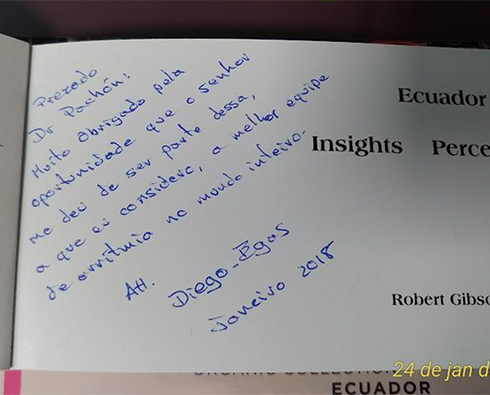 Prezado
Dr Pachón:
Muito obrigado pela
oportunidade que o senhor
me deu de ser parte dessa,
a que eu considero, a melhor equipe
de arritmia no mundo inteiro.
Att.
Diego Egas
Janeiro 2018
Ecuador
Insights Perce
Robert Gibso
24 de jan d
ECUADOR